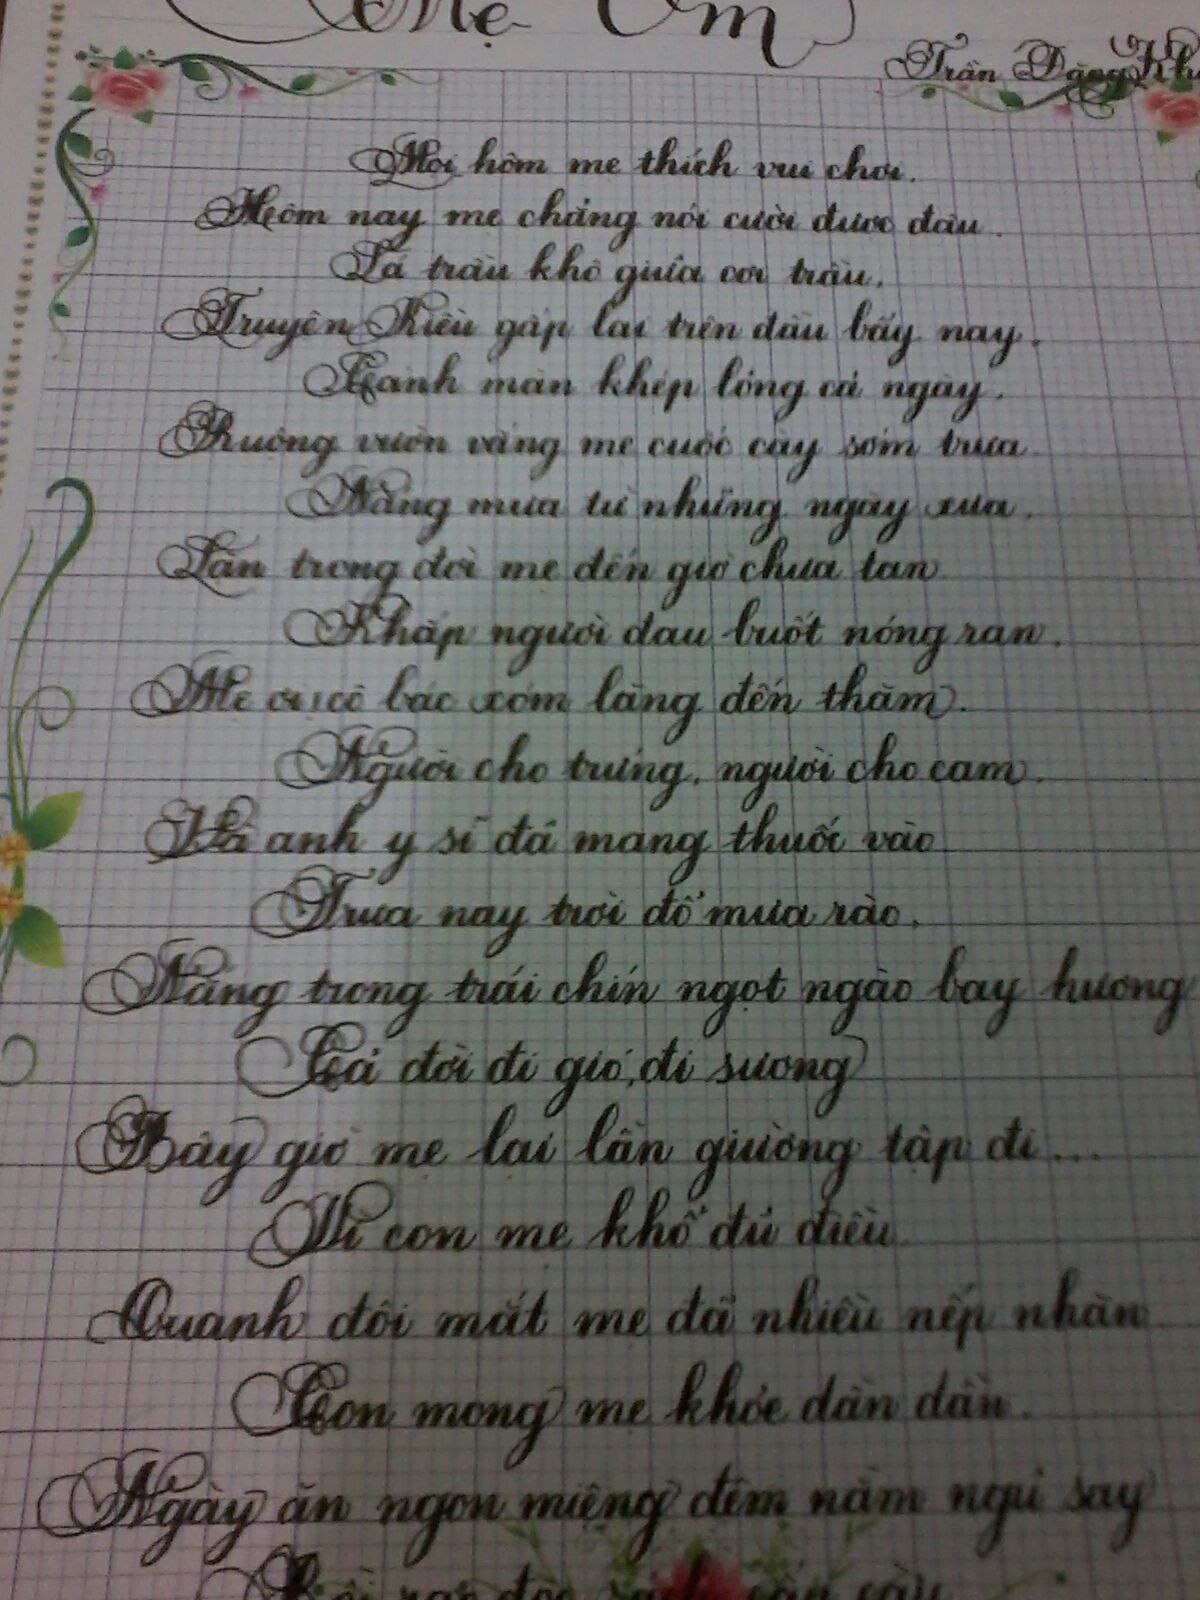 Mẹ Ốm
Trần Đăng Kho
Mọi hôm mẹ thích vui chơi.
Hôm nay mẹ chẳng nói cười được đâu.
Lá trầu khô giữa cơi trầu,
Truyện Kiều gấp lại trên đầu bấy nay.
Cánh màn khép lỏng cả ngày,
Ruộng vườn vắng mẹ cuốc cày sớm trưa
Nắng mưa từ những ngày xưa,
Lặn trong đời mẹ đến giờ chưa tan.
Khắp người đau buốt nóng ran,
Mẹ ơi! cô bác xóm làng đến thăm.
Người cho trứng, người cho cam,
Và anh y sĩ đã mang thuốc vào
Trưa nay trời đổ mưa rào,
Nắng trong trái chín ngọt ngào bay hương
Cả đời đi gió, đi sương
Bây giờ mẹ lại lần giường tập đi...
Vì con mẹ khổ đủ điều
Quanh đôi mắt mẹ đã nhiều nếp nhăn
Con mong mẹ khỏe dần dần.
Ngày ăn ngon miệng đêm nằm ngủ say